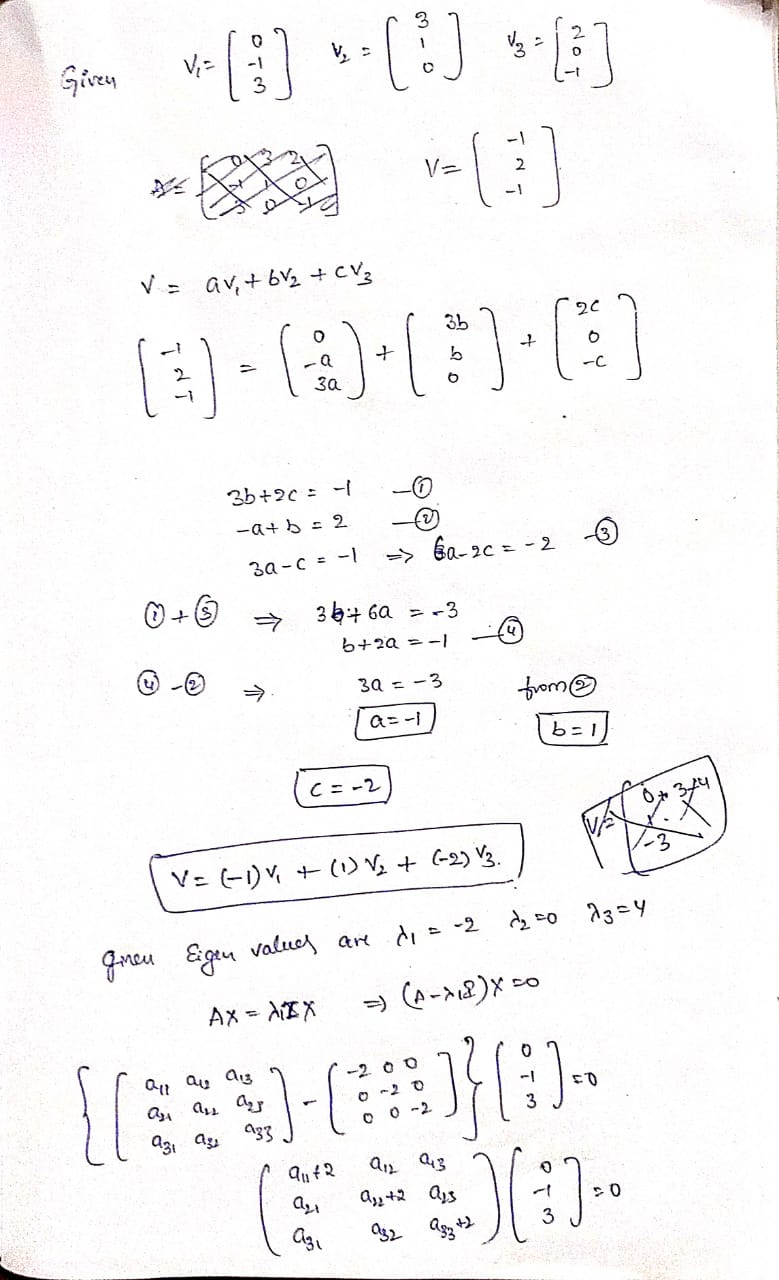 Given V₁ = [0 -1 3] V₂ = [3 1 0] V₃ = [2 0 -1]
A = [0 3 2 -1 1 0 3 0 -1] V = [-1 2 -1]
V = aV₁ + bV₂ + cV₃
[-1 2 -1] = [0 -a 3a] + [3b b 0] + [2c 0 -c]
3b+2c = -1 —①
-a+b = 2 —②
3a-c = -1 ⇒ 6a-2c = -2 —③
①+③ ⇒ 3b+6a = -3
b+2a = -1 —④
④-② ⇒ 3a = -3 from②
a=-1 b=1
c=-2
V = (-1)V₁ + (1)V₂ + (-2)V₃.
given Eigen values are λ₁ = -2 λ₂=0 λ₃=4
AX = λ₁IX ⇒ (A-λ₁I)X=0
{[a₁₁ a₁₂ a₁₃ a₂₁ a₂₂ a₂₃ a₃₁ a₃₂ a₃₃] - [-2 0 0 0 -2 0 0 0 -2]} [0 -1 3] =0
(a₁₁+2 a₁₂ a₁₃ a₂₁ a₂₂+2 a₂₃ a₃₁ a₃₂ a₃₃+2) [0 -1 3] =0